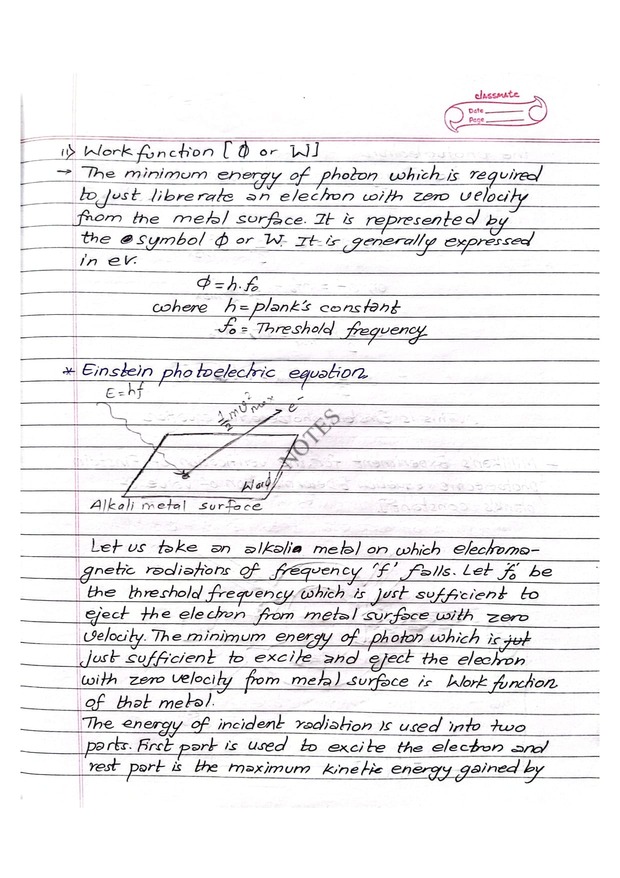 classmate
Date
Page
ii) Work function [ Φ or W ]
→ The minimum energy of photon which is required
to just librerate an electron with zero velocity
from the metal surface. It is represented by
the symbol Φ or W. It is generally expressed
in ev.
Φ = h.f₀
where h = plank's constant
f₀ = Threshold frequency
* Einstein photoelectric equation
E = hf
½mv²max
e⁻
NOTES
Alkali metal surface
Let us take an alkali metal on which electroma-
gnetic radiations of frequency 'f' falls. Let f₀' be
the threshold frequency which is just sufficient to
eject the electron from metal surface with zero
velocity. The minimum energy of photon which is jut
just sufficient to excite and eject the electron
with zero velocity from metal surface is Work function
of that metal.
The energy of incident radiation is used into two
parts. First part is used to excite the electron and
rest part is the maximum kinetic energy gained by